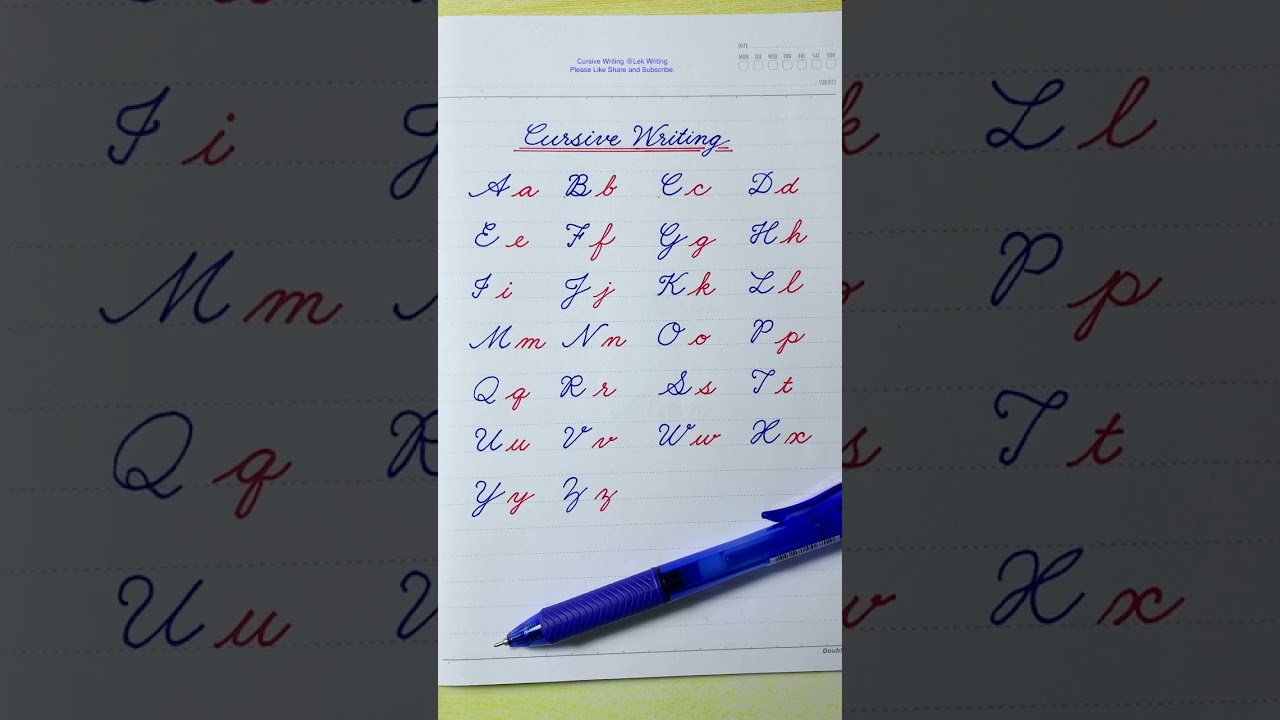 Cursive Writing @Lek Writing
Please Like Share and Subscribe.
DATE
MON TUE WED THU FRI SAT SUN
SUBJECT
Cursive Writing
A a B b C c D d
E e F f G g H h
I i J j K k L l
M m N n O o P p
Q q R r S s T t
U u V v W w X x
Y y Z z
Doubl